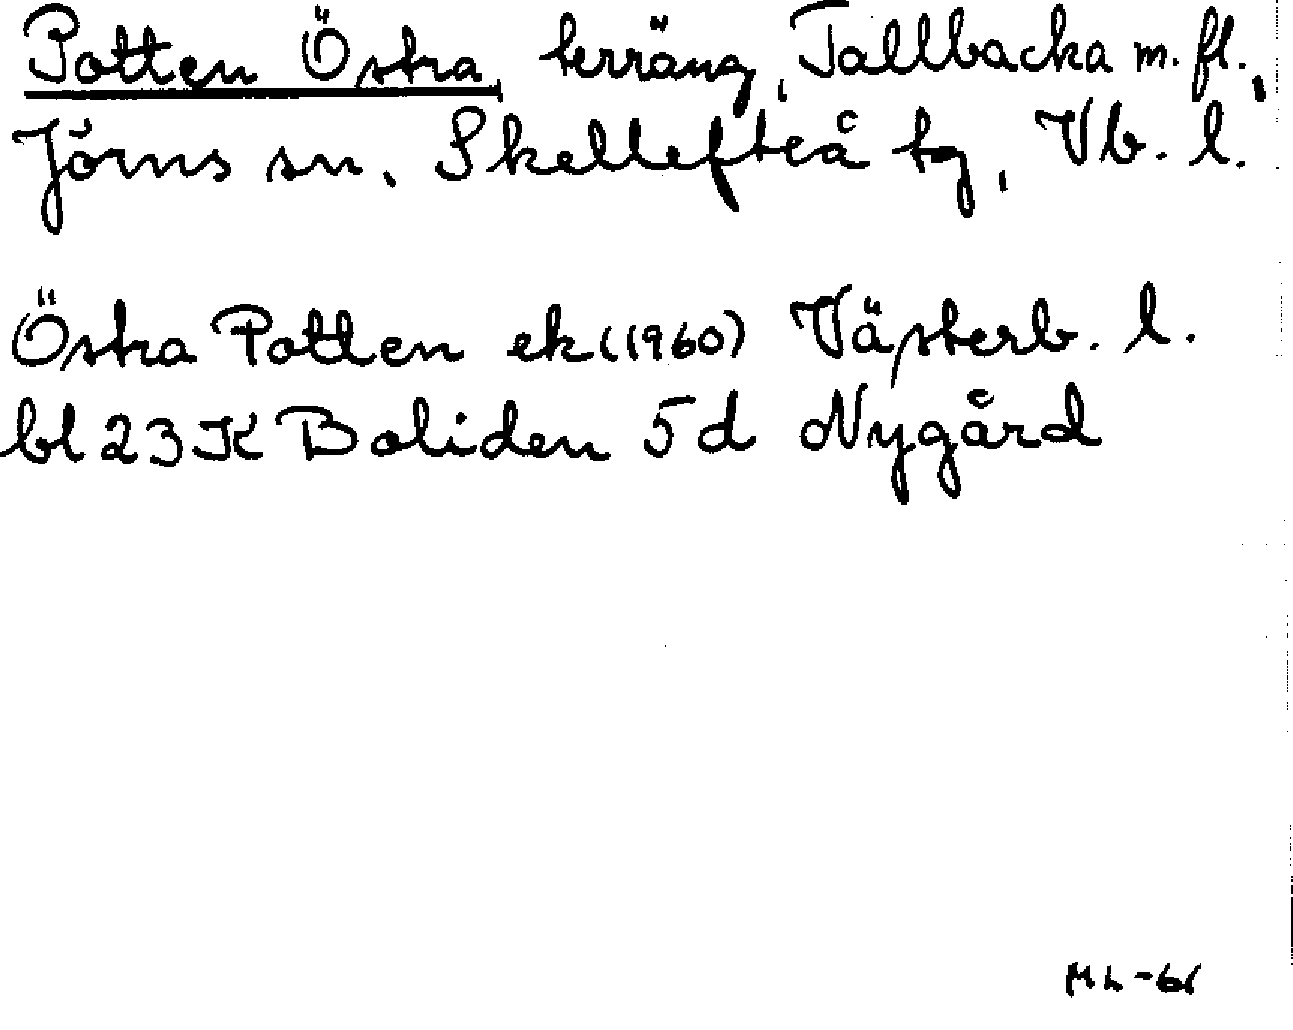 Potten Östra, terräng, Tallbacka m. fl.,
Jörns sn, Skellefteå tg, Vb. l.
Östra Potten ek (1960) Västerb. l.
bl 23 K Boliden 5 d Nygård
ML -61